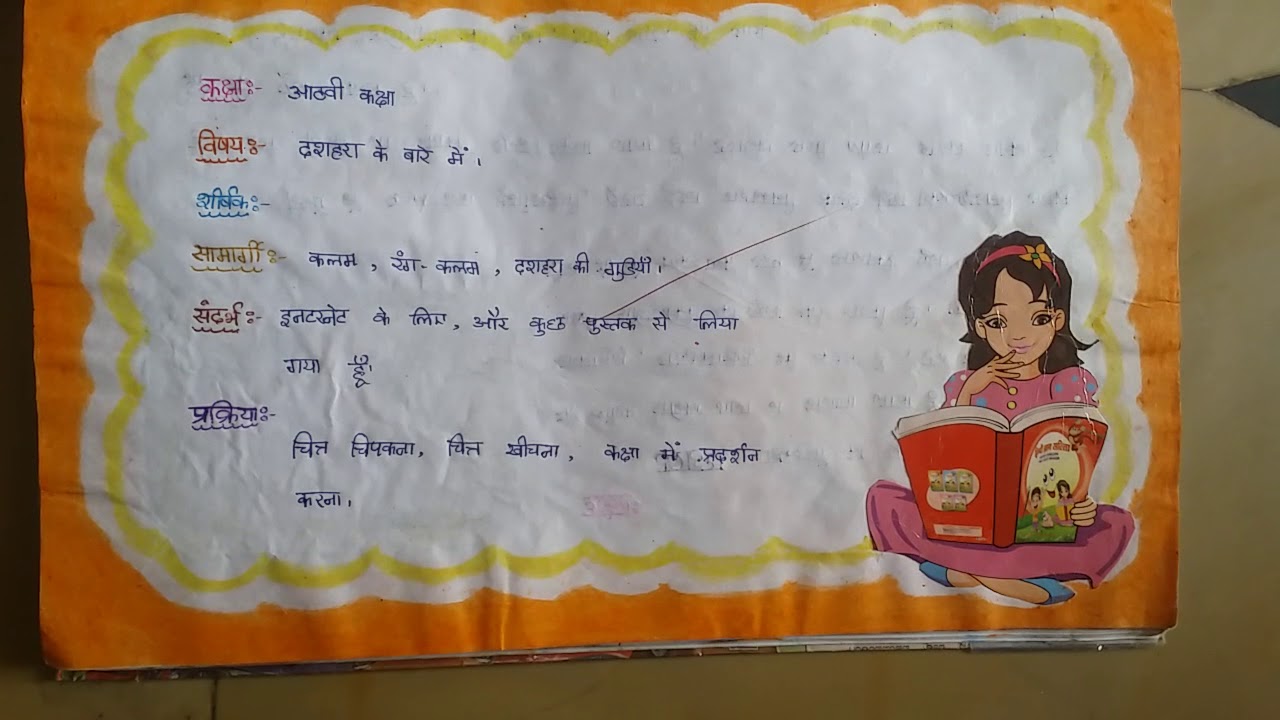 कक्षाः- आठवी कक्षा
विषयः- दशहरा के बारे में।
शर्षिकः-
सामार्गीः- कलम, रंग-कलम, दशहरा की गुडियाँ।
संदर्भः- इनटरनेट के लिए, और कुछ पुस्तक से लिया
गया हूँ।
प्रक्रियाः-
चित्त चिपकना, चित्त खीचना, कक्षा में प्रदर्शन
करना।